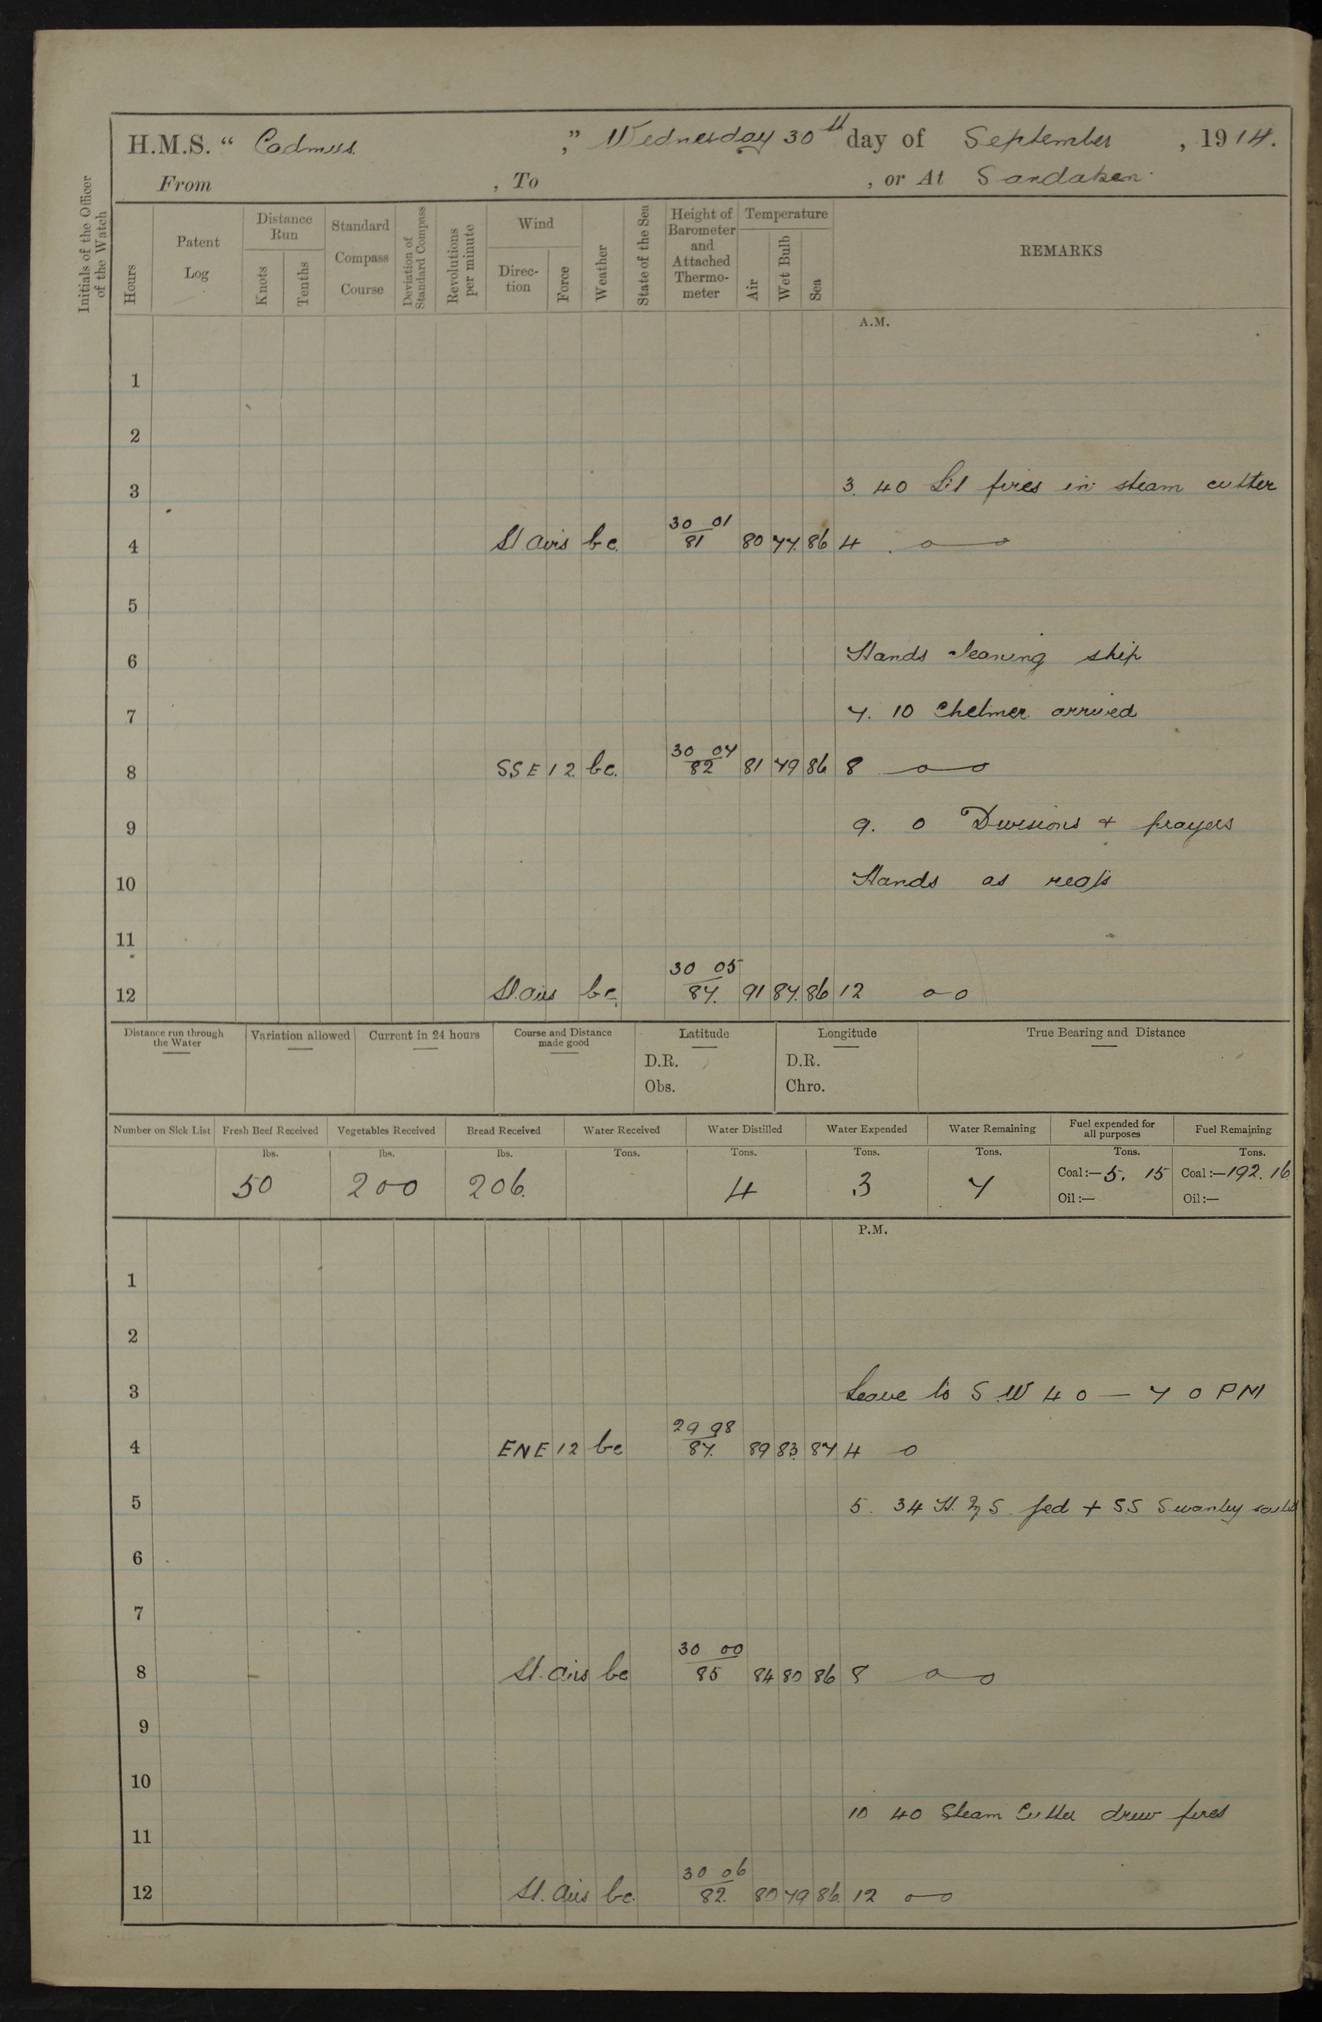 H.M.S. “ Cadmus ,” Wednesday 30th day of September , 1914.
From , To , or At Sandakan
Initials of the Officer of the Watch
Hours
Patent Log
Distance Run
Knots
Tenths
Standard Compass Course
Deviation of Standard Compass
Revolutions per minute
Wind
Direc-tion
Force
Weather
State of the Sea
Height of Barometer and Attached Thermo-meter
Temperature
Air
Wet Bulb
Sea
REMARKS
A.M.
1
2
3 3. 40 Lit fires in steam cutter
4 Lt airs bc. 30 01 81 80 77 86 4
5
6 Hands cleaning ship
7 7. 10 Chelmer arrived
8 SSE 12 bc. 30 07 82 81 79 86 8
9 9. 0 Divisions + prayers
10 Hands as req/s
11
12 Lt. airs bc. 30 05 87. 91 87. 86 12
Distance run through the Water
Variation allowed
Current in 24 hours
Course and Distance made good
Latitude
D.R.
Obs.
Longitude
D.R.
Chro.
True Bearing and Distance
Number on Sick List Fresh Beef Received Vegetables Received Bread Received Water Received Water Distilled Water Expended Water Remaining Fuel expended for all purposes Fuel Remaining
lbs. lbs. lbs. Tons. Tons. Tons. Tons. Tons. Tons.
50 200 206. 4 3 7 Coal:—5. 15 Coal:—192. 16
Oil:— Oil:—
P.M.
1
2
3 Leave to S.W 4 0 — 7 0 PM
4 ENE 12 bc 29 98 87. 89 83 87 4
5 5. 34 S. fed + SS Swanley
6
7
8 Lt. airs bc 30 00 85 84 80 86 8
9
10
10 40 Steam Cutter drew fires
11
12 Lt. airs bc. 30 06 82. 80 79 86. 12